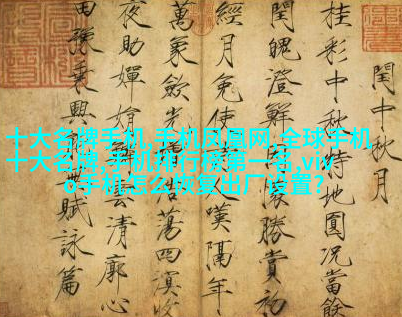 十大名牌手机,手机凤凰网,全球手机
十大名牌,手机排行榜第一名,viv
o手机怎么恢复出厂设置?
閏中秋月
桂彩中秋特地圓况當餘
閏魄澄鮮勝賞初
經月免使嘆隔年
萬象斂光浩蕩四溟收
夜助嬋娟雲清廓心
田豫乘興賦詠篇